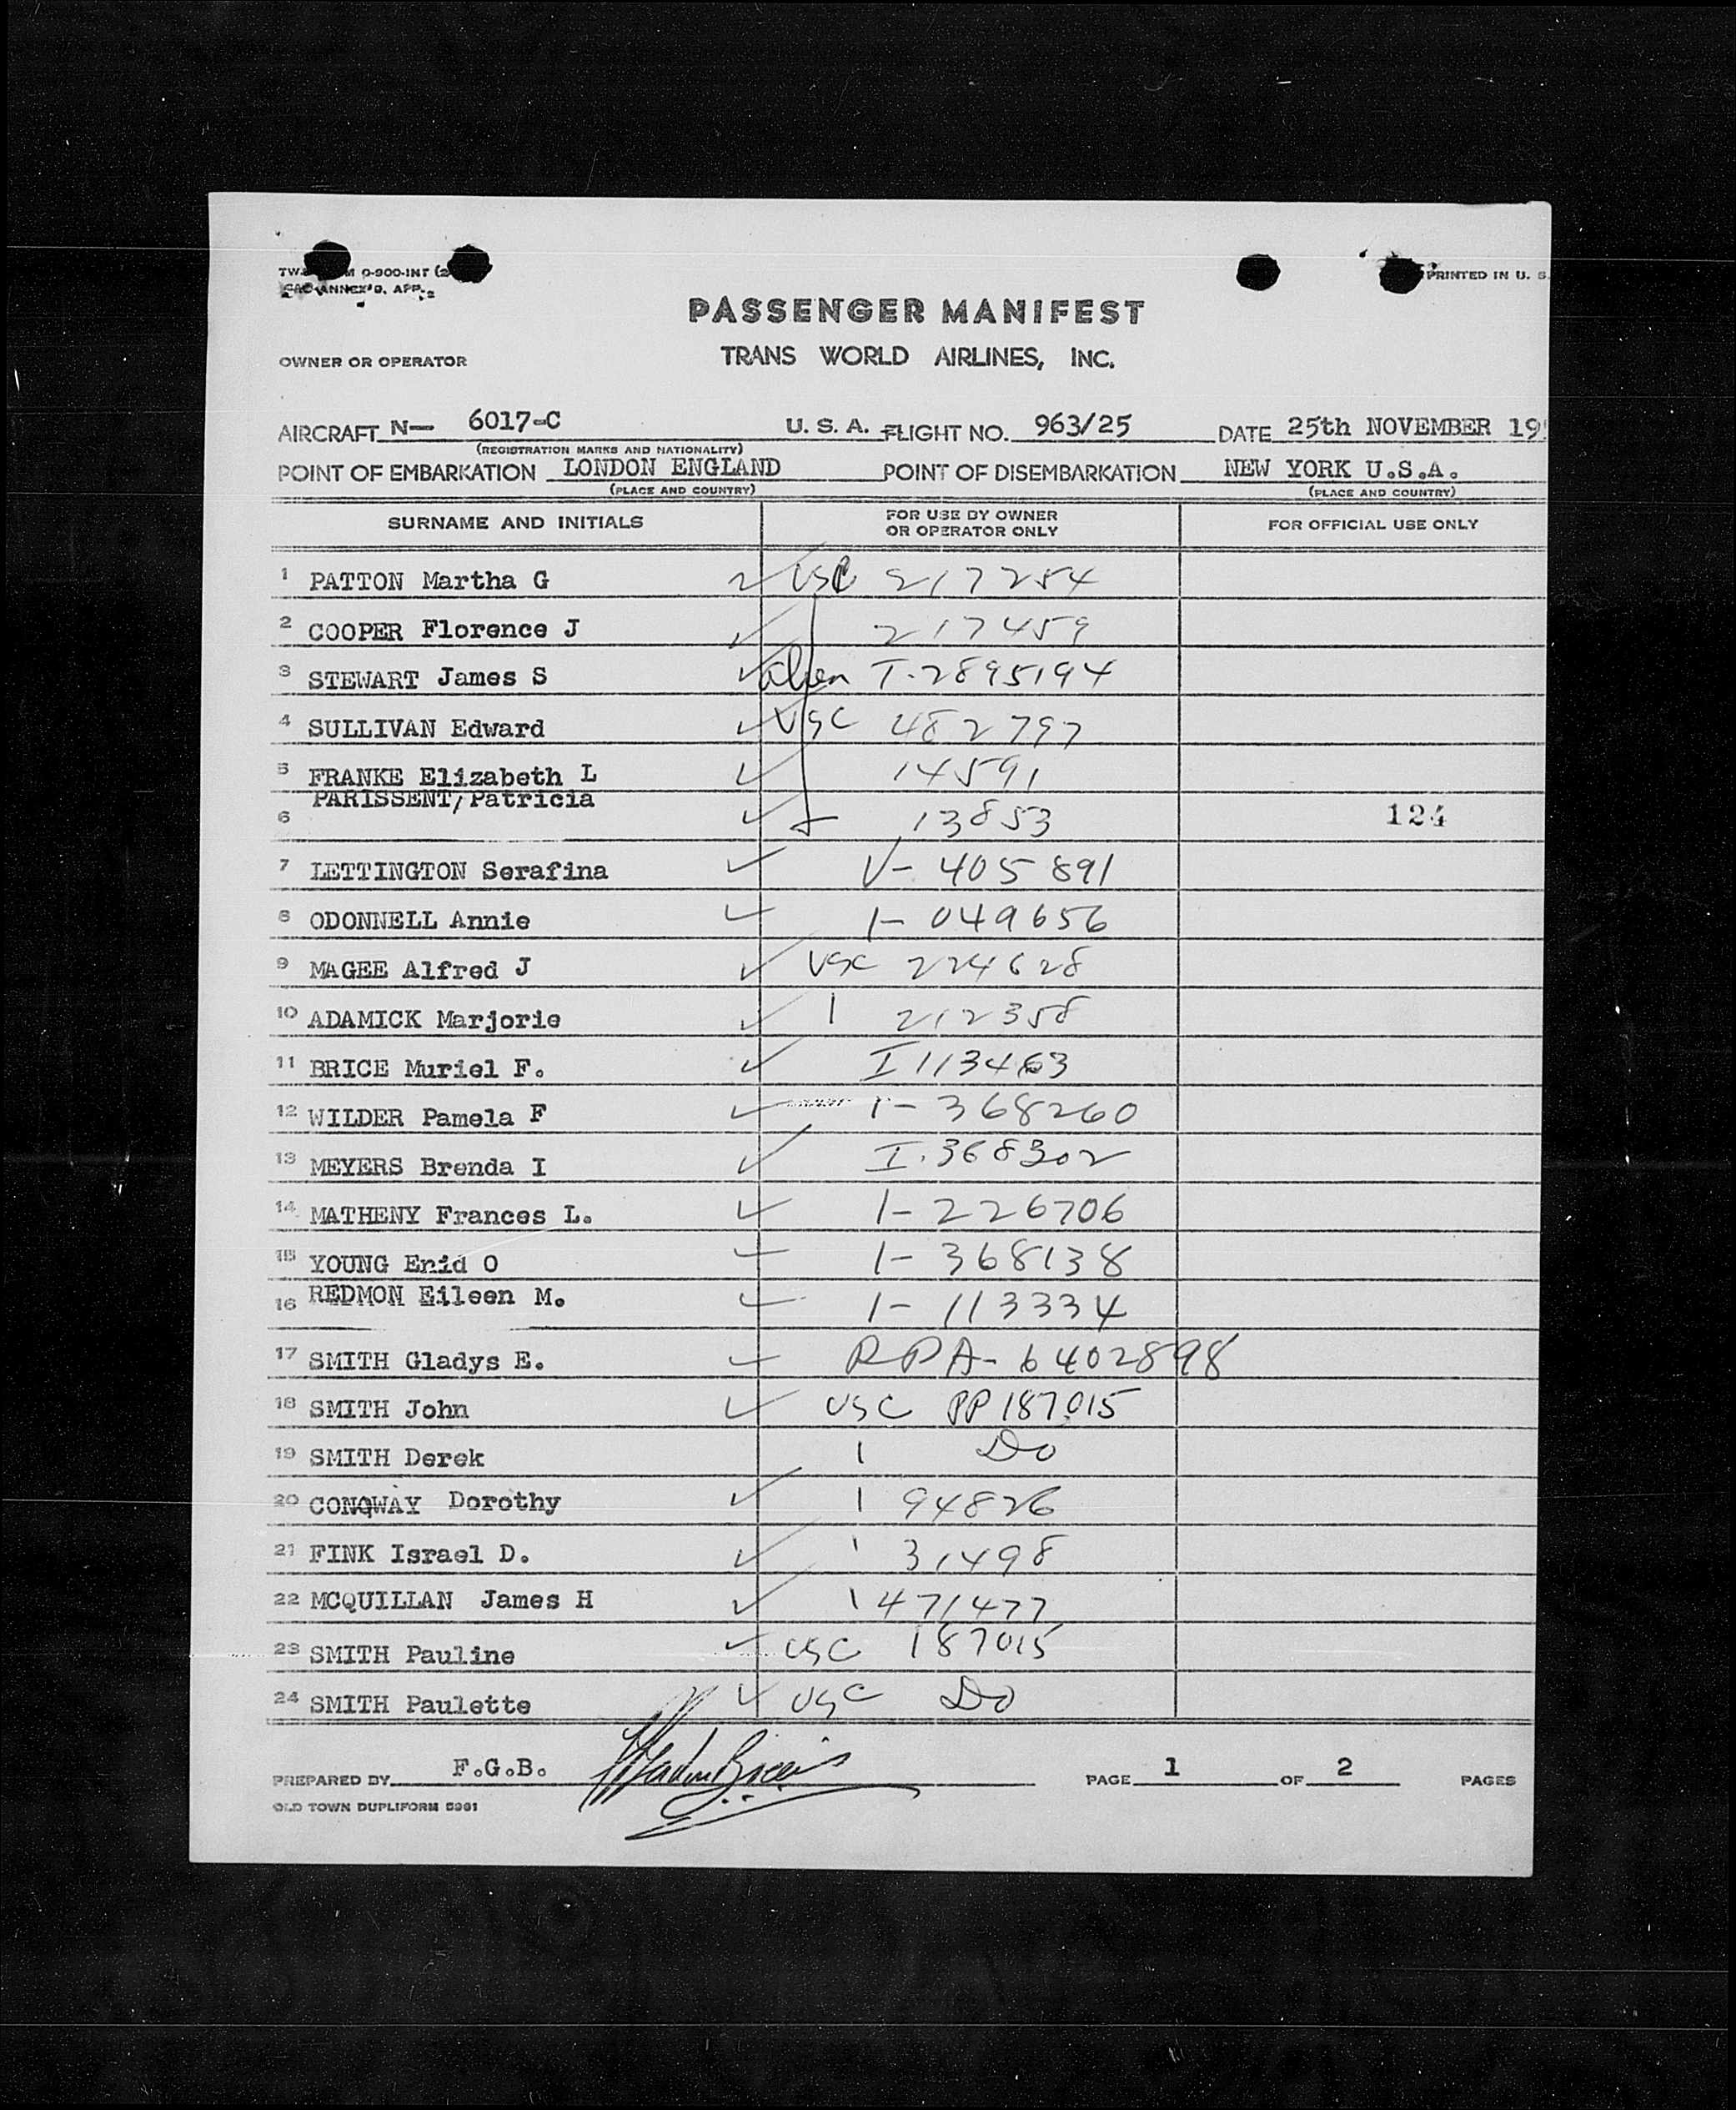 PRINTED IN U. S.
ANNEX 9, APP. 2
PASSENGER MANIFEST
OWNER OR OPERATOR TRANS WORLD AIRLINES, INC.
AIRCRAFT N— 6017-C U. S. A. FLIGHT NO. 963/25 DATE 25th NOVEMBER 19
(REGISTRATION MARKS AND NATIONALITY)
POINT OF EMBARKATION LONDON ENGLAND POINT OF DISEMBARKATION NEW YORK U.S.A.
(PLACE AND COUNTRY) (PLACE AND COUNTRY)
SURNAME AND INITIALS FOR USE BY OWNER OR OPERATOR ONLY FOR OFFICIAL USE ONLY
1 PATTON Martha G USC 217254
2 COOPER Florence J 217459
3 STEWART James S Alien I-2895194
4 SULLIVAN Edward USC 482797
5 FRANKE Elizabeth L 14591
6 PARISSENT/Patricia 13853 124
7 LETTINGTON Serafina V- 405891
8 ODONNELL Annie 1- 049656
9 MAGEE Alfred J USC 224628
10 ADAMICK Marjorie 1 212358
11 BRICE Muriel F. I 113463
12 WILDER Pamela F 1- 368260
13 MEYERS Brenda I I-368302
14 MATHENY Frances L. 1- 226706
15 YOUNG Enid O 1- 368138
16 REDMON Eileen M. 1- 113334
17 SMITH Gladys E. RPA- 6402898
18 SMITH John USC PP187015
19 SMITH Derek 1 Do
20 CONQWAY Dorothy 1 94826
21 FINK Israel D. 1 31498
22 MCQUILLAN James H 1 471477
23 SMITH Pauline USC 187015
24 SMITH Paulette USC Do
PREPARED BY F.G.B. PAGE 1 OF 2 PAGES
OLD TOWN DUPLIFORM